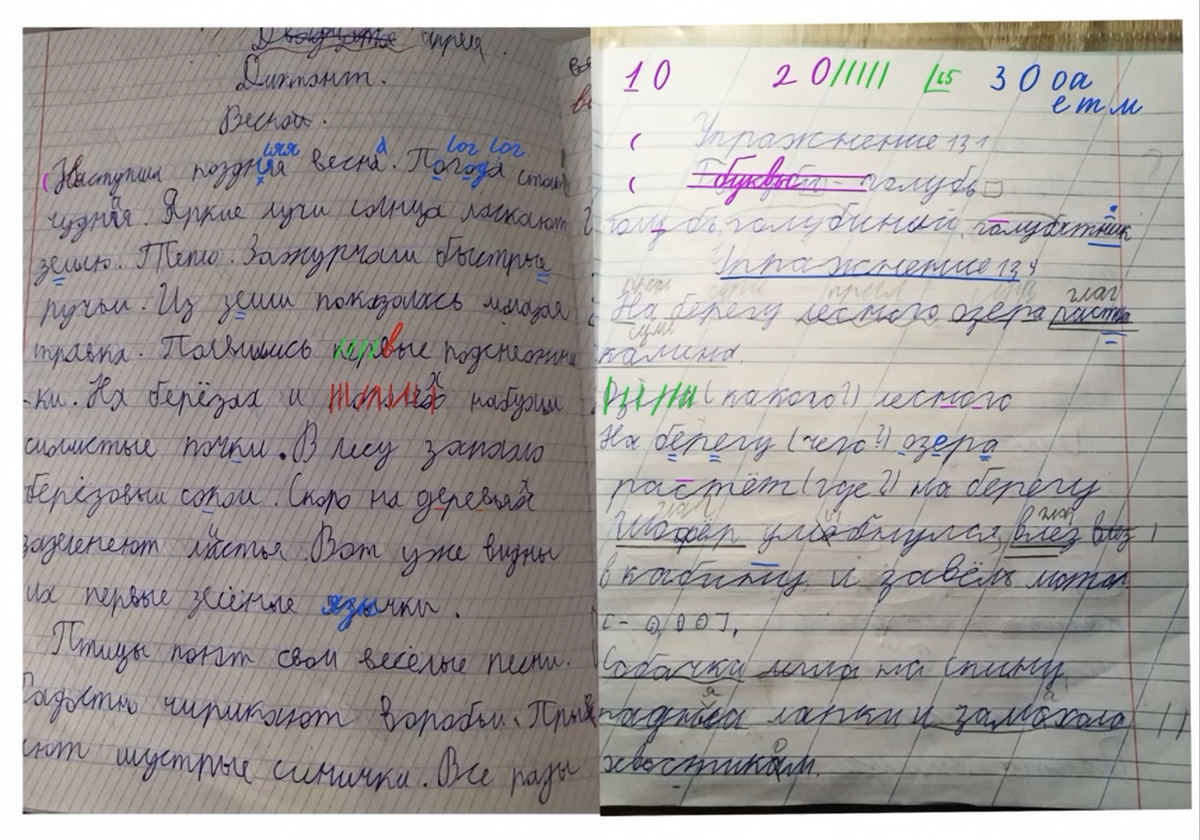 апреля.
Диктант.
Весной.
Наступила поздняя весна. Погода стоит
чудная. Яркие лучи солнца ласкают
землю. Тепло. Зажурчали быстрые
ручьи. Из земли показалась молодая
травка. Появились первые подснежни
-ки. На берёзах и набухли
смолистые почки. В лесу запахло
берёзовым соком. Скоро на деревьях
зазеленеют листья. Вот уже видны
их первые зелёные язычки.
Птицы поют свои весёлые песни.
Радостно чирикают воробьи. Прыга
ют шустрые синички. Все рады
10 20 30 оа
е т и
Упражнение 131
голубь
голубь, голубиной, голубятник
Упражнение 134
глаг
На берегу лесного озера растёт
калина.
(какого?) лесного
На берегу (чего?) озера
растёт (где?) на берегу
глаг глаг
Шофёр улыбнулся, влез влез
в кабину и завёл мотор.
Собачка легла на спину
подняла лапки и замахала
хвостиком.